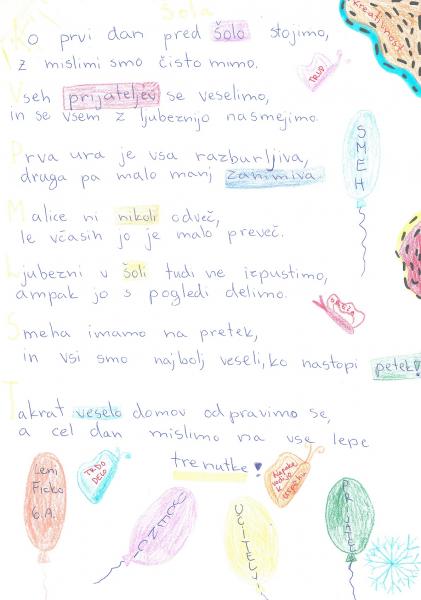 Šola
Ko prvi dan pred šolo stojimo,
z mislimi smo čisto mimo.
Vseh prijateljev se veselimo,
in se vsem z ljubeznijo nasmejimo.
Prva ura je vsa razburljiva,
druga pa malo manj zanimiva.
Malice ni nikoli odveč,
le včasih jo je malo preveč.
Ljubezni v šoli tudi ne izpustimo,
ampak jo s pogledi delimo.
Smeha imamo na pretek,
in vsi smo najbolj veseli, ko nastopi petek!
Takrat veselo domov odpravimo se,
a cel dan mislimo na vse lepe
trenutke!
kreativnost
TRUD
SMEH
SREČA
Leni
Ficko
6.A.
TRDO
DELO
UČENCI
UČITELJI
Napake
vodijo
k
uspehu